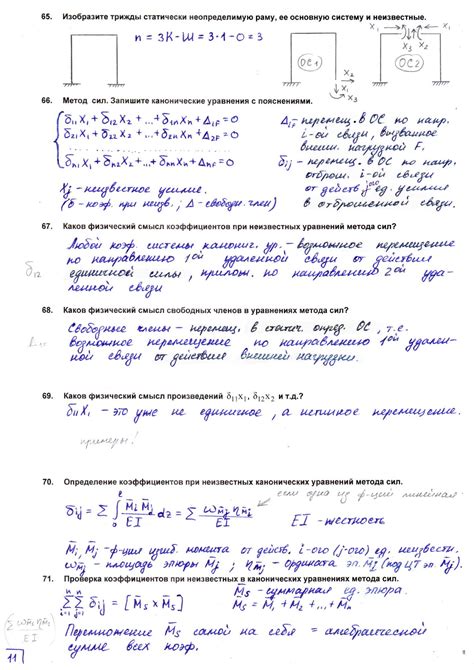 65. Изобразите трижды статически неопределимую раму, ее основную систему и неизвестные.
n = 3К-Ш = 3·1-0 = 3
X₁ X₁
X₃ X₂
ОС1 ОС2
X₂
X₁ X₃
66. Метод сил. Запишите канонические уравнения с пояснениями.
δ₁₁X₁ + δ₁₂X₂ + ...+ δ₁ₙXₙ + Δ₁F = 0
δ₂₁X₁ + δ₂₂X₂ + ...+ δ₂ₙXₙ + Δ₂F = 0
. . . . . . . . . . . . . . . . . .
δₙ₁X₁ + δₙ₂X₂ + ...+ δₙₙXₙ + ΔₙF = 0
Xj - неизвестное усилие.
(δ - коэф. при неизв.; Δ - свободн. член)
ΔiF перемещ. в ОС по напр.
i-ой связи, вызванное
внешн. нагрузкой F.
δij - перемещ. в ОС по напр.
отброш. i-ой связи
от действ jого ед. усилия
в отброшенной связи.
67. Каков физический смысл коэффициентов при неизвестных уравнений метода сил?
Любой коэф. системы канонич. ур. - возможное перемещение
по направлению 1ой удаленной связи от действия
δ₁₂ единичной силы, прилож. по направлению 2ой уда-
ленной связи
68. Каков физический смысл свободных членов в уравнениях метода сил?
Свободные члены - перемещ. в статич. опред. ОС, т.е.
возможное перемещение по направлению 1ой удален-
ной связи от действия внешней нагрузки.
69. Каков физический смысл произведений δ₁₁x₁, δ₁₂x₂ и т.д.?
δ₁₁X₁ - это уже не единичное, а истинное перемещение.
примеры!
70. Определение коэффициентов при неизвестных канонических уравнений метода сил.
если одна из ф-ций линейная
δij = Σ ∫₀ˡ M̄i M̄j / EI dz = Σ ωm̄j ηm̄i / EI
EI - жесткость
M̄i, M̄j - ф-ция изгиб. момента от действ. i-ого (j-ого) ед. неизвестн.
ωm̄j - площадь эпюры M̄j ; ηm̄i - ордината эп. M̄i (под ЦТ эп. M̄j).
71. Проверка коэффициентов при неизвестных в канонических уравнениях метода сил.
Σⁿi=1 Σⁿj=1 δij = [M̄s x M̄s]
M̄s - суммарная ед. эпюра.
M̄s = M̄₁ + M̄₂ + ... + M̄ₙ
Перемножение M̄s самой на себя = алгебраической
сумме всех коэф.
11